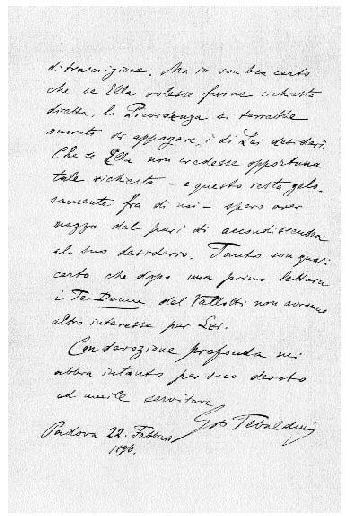 di trascrizione. Ma io son ben certo
che se Ella volesse farne richiesta
diretta, la Presidenza si terrebbe
onorata di appagare i di Lei desideri.
Che se Ella non credesse opportuna
tale richiesta - e questo resti gelo-
samente fra di noi - spero aver
mezzo del pari di accondiscendere
al suo desiderio. Tanto son quasi
certo che dopo una prima lettura
i Te Deum del Vallotti non avranno
altro interesse per Lei.
Con devozione profonda mi
abbia intanto per suo devoto
ed umile servitore
Gio Tebaldini
Padova 22. Febbraio
1896.